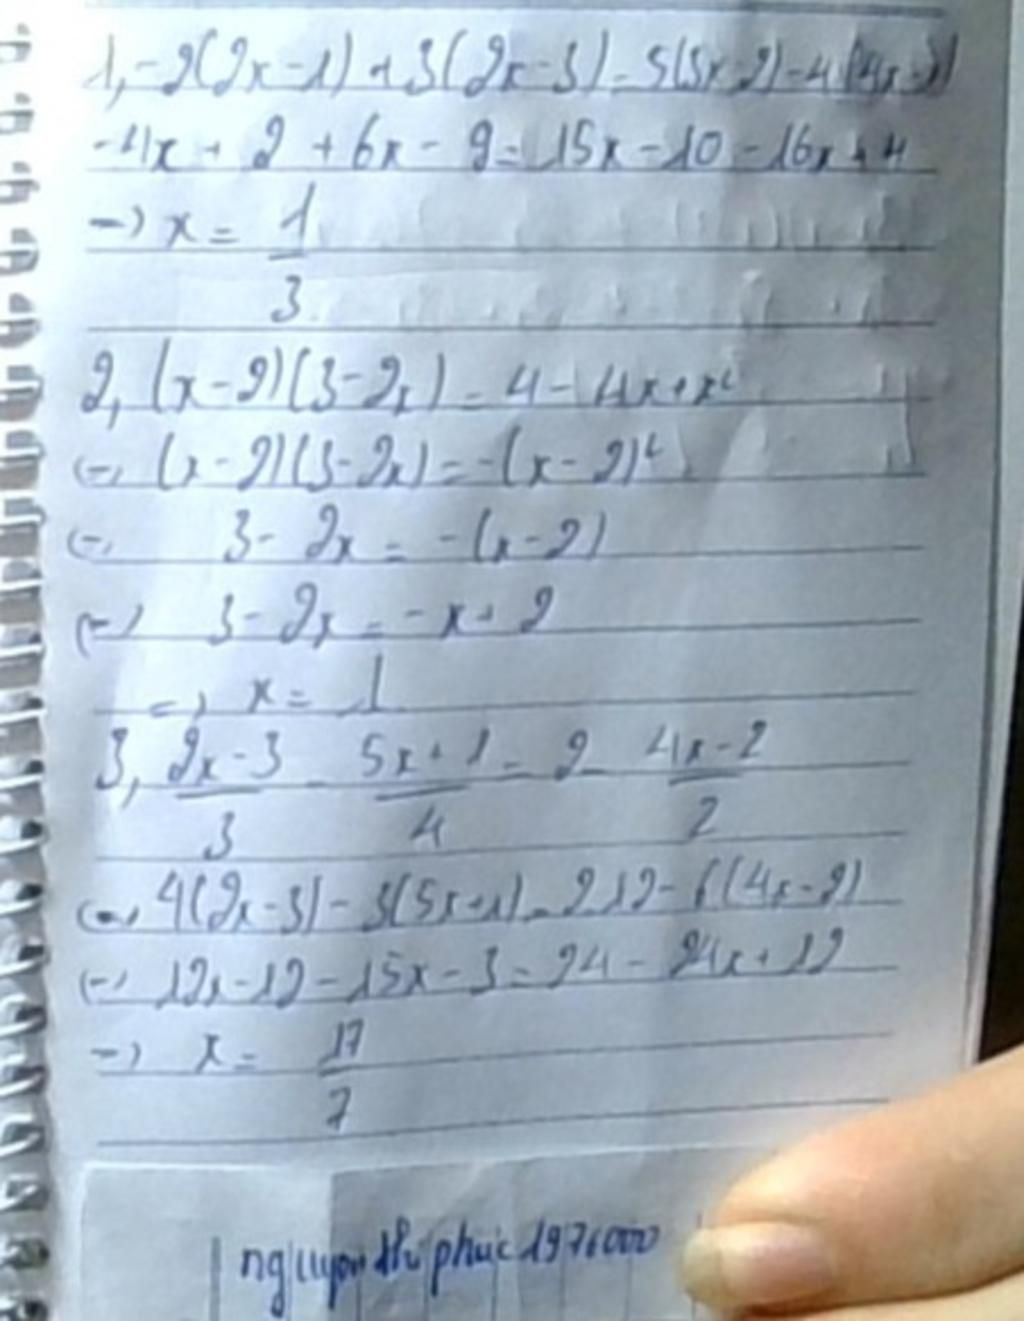 1, -2(2x-1) + 3(2x-3) = 5(3x-2) - 4(4x-1)
-4x + 2 + 6x - 9 = 15x - 10 - 16x + 4
=> x = 1/3
2, (x-2)(3-2x) = 4 - 4x + x²
(=) (x-2)(3-2x) = -(x-2)²
(=) 3 - 2x = -(x-2)
(=) 3 - 2x = -x + 2
=> x = 1
3, (2x-3)/3 - (5x+1)/4 = 2 - (4x-2)/2
(=) 4(2x-3) - 3(5x+1) = 2.12 - 6(4x-2)
(=) 12x - 12 - 15x - 3 = 24 - 24x + 12
=> x = 17/7
thi phuc 1976000